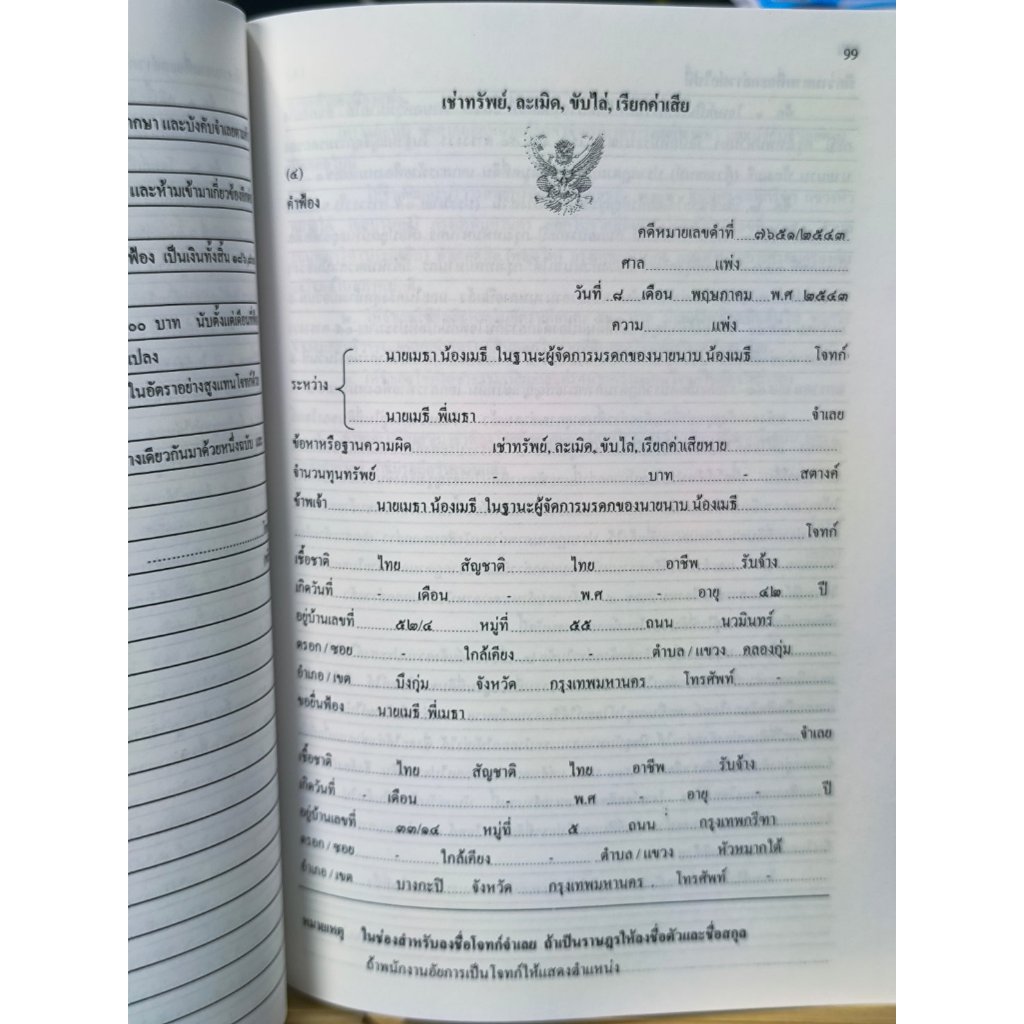 กษา และบังคับจำเลยตามคำ
และห้ามเข้ามาเกี่ยวข้องอีก
ฟ้อง เป็นเงินทั้งสิ้น
๐๐ บาท นับตั้งแต่เดือนที่
เปลง
ในอัตราอย่างสูงแทนโจทก์ด้วย
างเดียวกันมาด้วยหนึ่งฉบับ และ
99
เช่าทรัพย์, ละเมิด, ขับไล่, เรียกค่าเสีย
(๕)
คำฟ้อง
คดีหมายเลขดำที่ ๗๖๕๑/๒๕๔๓
ศาล แพ่ง
วันที่ ๘ เดือน พฤษภาคม พ.ศ ๒๕๔๓
ความ แพ่ง
นายเมธา น้องเมธี ในฐานะผู้จัดการมรดกของนายนาบ น้องเมธี โจทก์
ระหว่าง
นายเมธี พี่เมธา จำเลย
ข้อหาหรือฐานความผิด เช่าทรัพย์, ละเมิด, ขับไล่, เรียกค่าเสียหาย
จำนวนทุนทรัพย์ - บาท - สตางค์
ข้าพเจ้า นายเมธา น้องเมธี ในฐานะผู้จัดการมรดกของนายนาบ น้องเมธี
โจทก์
เชื้อชาติ ไทย สัญชาติ ไทย อาชีพ รับจ้าง
เกิดวันที่ - เดือน - พ.ศ - อายุ ๔๒ ปี
อยู่บ้านเลขที่ ๕๒/๔ หมู่ที่ ๕๕ ถนน นวมินทร์
ตรอก / ซอย - ใกล้เคียง - ตำบล / แขวง คลองกุ่ม
อำเภอ / เขต บึงกุ่ม จังหวัด กรุงเทพมหานคร โทรศัพท์ -
ขอยื่นฟ้อง นายเมธี พี่เมธา
จำเลย
เชื้อชาติ ไทย สัญชาติ ไทย อาชีพ รับจ้าง
เกิดวันที่ - เดือน - พ.ศ - อายุ - ปี
อยู่บ้านเลขที่ ๓๓/๑๔ หมู่ที่ ๕ ถนน กรุงเทพกรีฑา
ตรอก / ซอย - ใกล้เคียง - ตำบล / แขวง หัวหมากใต้
อำเภอ / เขต บางกะปิ จังหวัด กรุงเทพมหานคร โทรศัพท์ -
หมายเหตุ ในช่องสำหรับลงชื่อโจทก์จำเลย ถ้าเป็นราษฎรให้ลงชื่อตัวและชื่อสกุล
ถ้าพนักงานอัยการเป็นโจทก์ให้แสดงตำแหน่ง